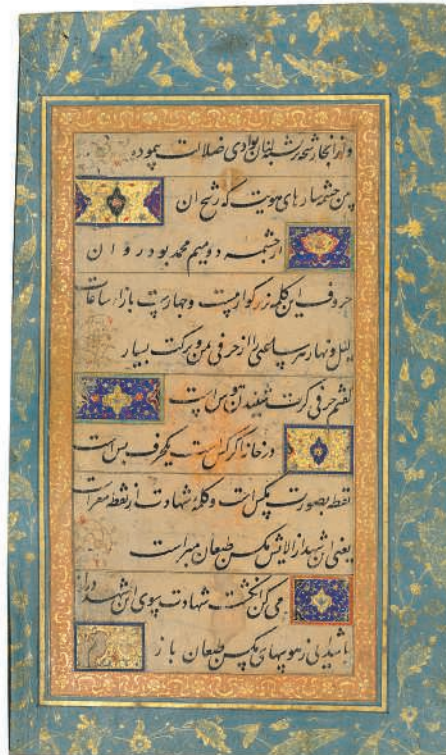 و از انجا رشحه لبان بوادی ضلالت پیموده
بین چشمسارهای هویت که رشح ان
از چشمه دو میم محمد بود روان
حروف این کلمه بزرکوار بیست و چهارست بازاء ساعات
لیل و نهار هر ساعتی را از حرفی من و برکت بسیار
کفتم حرفی کرت شنیدن هوس است
در خانه اکر کس است یکحرف بس است
نقطه بصورت مکس است و کلمه شهادت از نقطه معراست
یعنی این شهد از الایش مکس طبعان مبراست
می کن انکشت شهادت بسوی این شهد دراز
ز هوسهای مکس طبعان باز